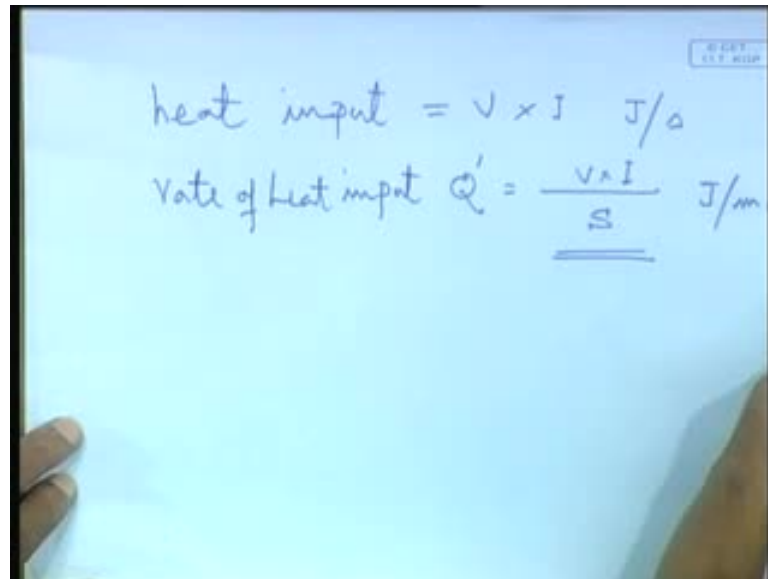 © CET
I.I.T. KGP
heat input = V × I J/s
rate of heat input Q' = V × I / S J/m